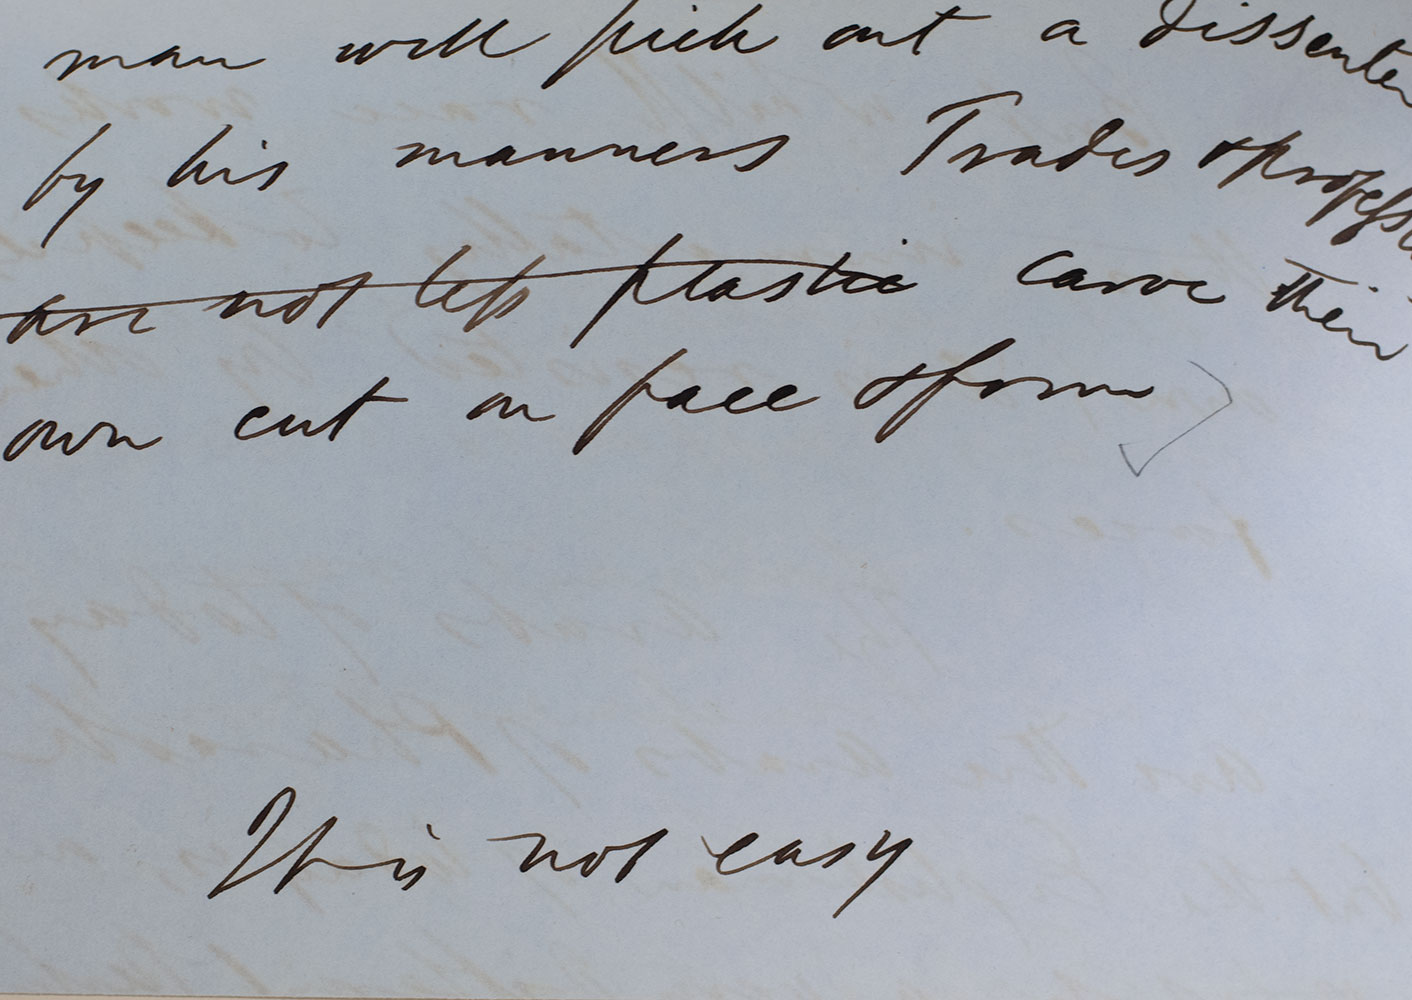 man will pick out a dissenter
by his manners Trades & profess
are not less plastic carve their
own cut on face & form
It is not easy